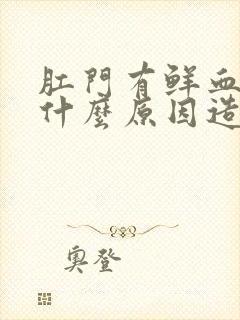 肛門有鮮血
什麼原因造
奧登